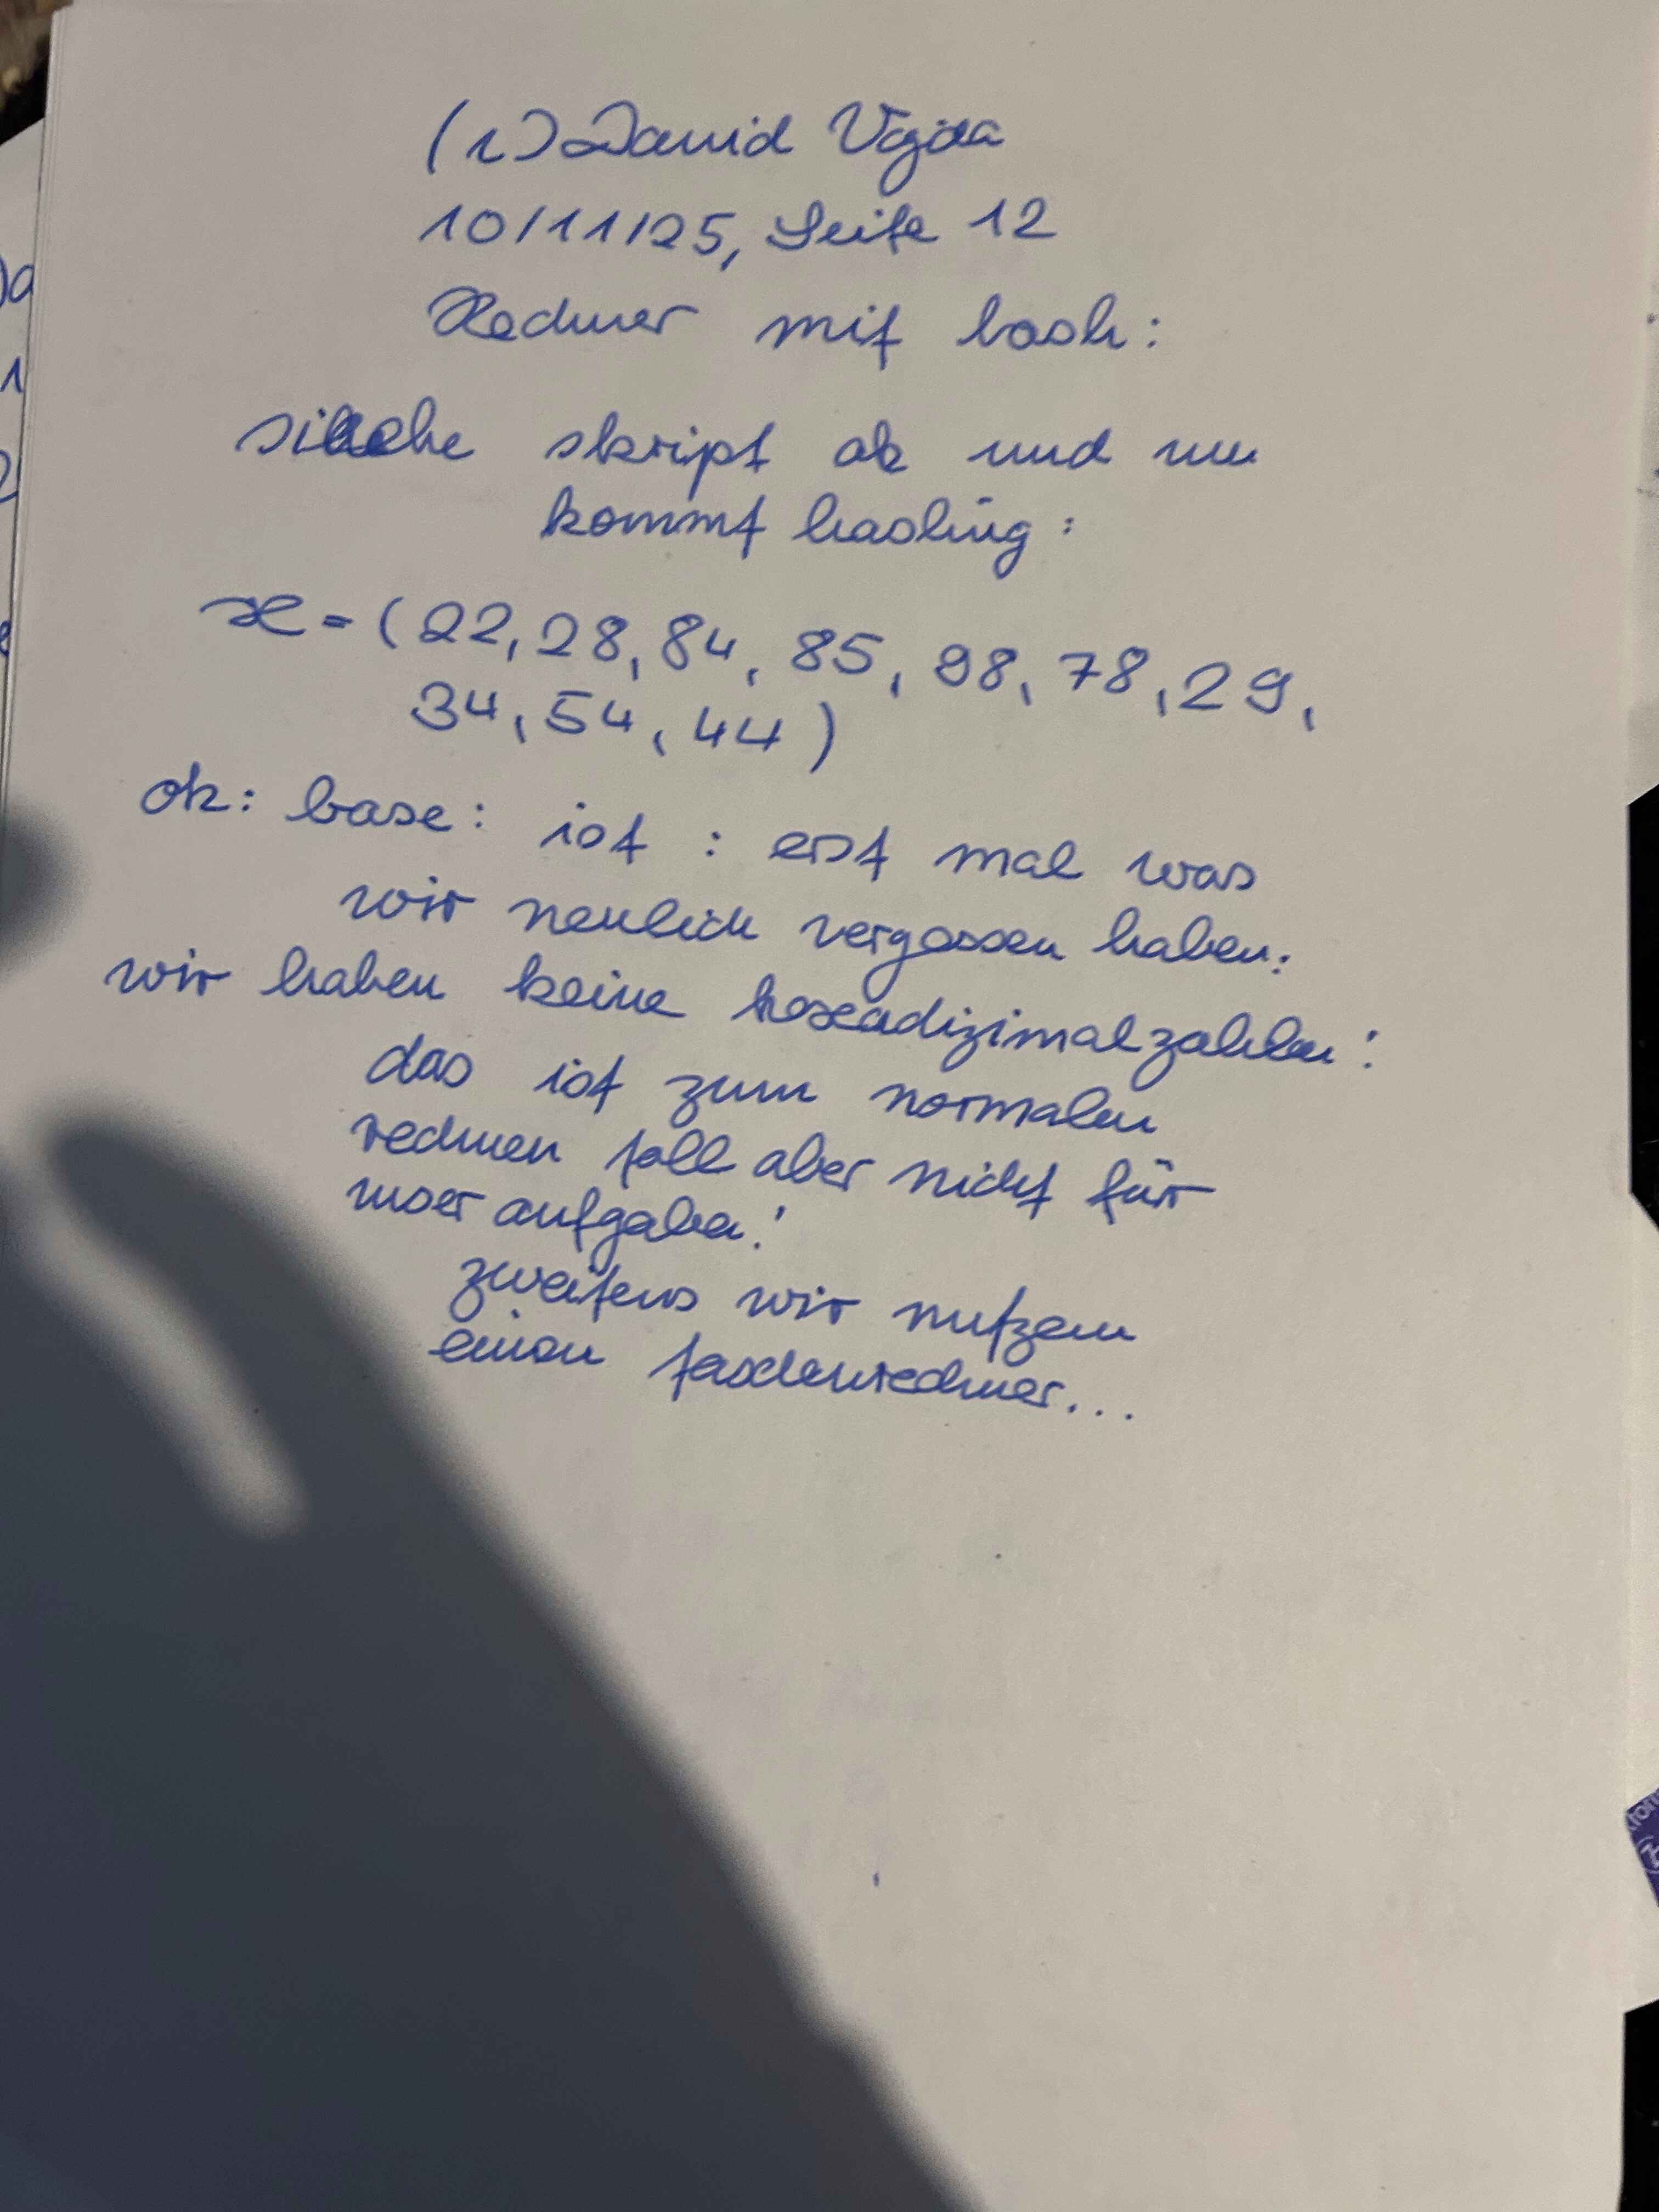 (1) David Vajda
10/11/25, Seite 12
Rechner mit bash:
siehe skript ab und nu
kommt hashing:
x=(22,28,84,85,98,78,29,
34,54,44)
ok: base: ist : erst mal was
wir neulich vergessen haben:
wir haben keine hexadizimalzahlen!
das ist zum normalen
rechnen toll aber nicht für
unser aufgaben!
zweitens wir nutzen
einen taschenrechner...